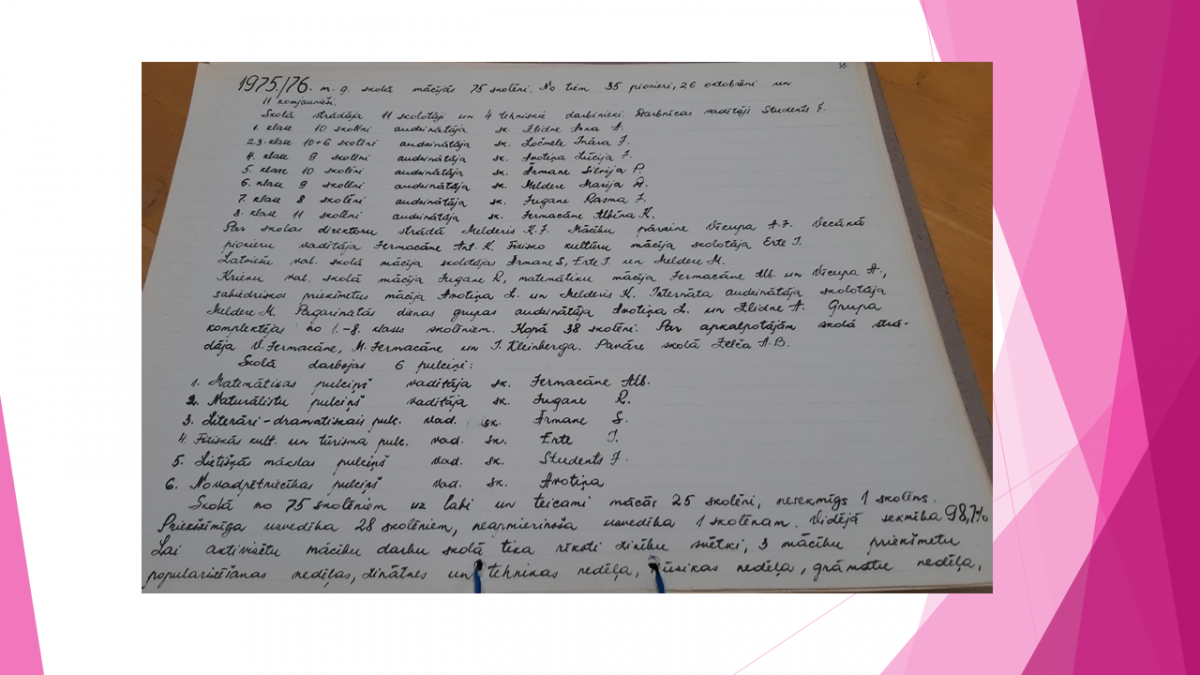 1975/76. m. g. skolā mācījās 75 skolēni. No tiem 35 pionieri, 26 oktobrēni un
11 komjaunieši.
Skolā strādāja 11 skolotāji un 4 tehniskie darbinieki. Darbnīcas vadītāji Students J.
1. klase 10 skolēni audzinātāja sk. Zlidne Anna A.
2.3. klase 10+6 skolēni audzinātāja sk. Ločmele Ināra J.
4. klase 9 skolēni audzinātāja sk. Avotiņa Lūcija J.
5. klase 10 skolēni audzinātāja sk. Ārmane Silvija P.
6. klase 9 skolēni audzinātāja sk. Meldere Marija
7. klase 8 skolēni audzinātāja sk. Fugane Rasma J.
8. klase 11 skolēni audzinātāja sk. Fermacāne Albīna K.
Par skolas direktoru strādā Melderis K. J. Mācību pārzine Vīcupa A. J. Vecākā
pionieru vadītāja Fermacāne Ant. K. Fizisko kultūru mācīja skolotāja Erte I.
Latviešu val. skolā mācīja skolotājas Ārmane S, Erte I. un Meldere M.
Krievu val. skolā mācīja Fugane R, matemātiku mācīja Fermacāne Alb. un Vīcupa A.,
sabiedriskos priekšmetus mācīja Avotiņa L. un Melderis K. Internāta audzinātāja skolotāja
Meldere M. Pagarinātās dienas grupas audzinātāja Avotiņa L. un Zlidne A. Grupa
komplektējas no 1.-8. klases skolēniem. Kopā 38 skolēni. Par apkalpotājām skolā strā-
dāja V. Fermacāne, M. Fermacāne un I. Kleinberga. Pavāre skolā Zelča A. B.
Skolā darbojas 6 pulciņi:
1. Matemātikas pulciņš vadītāja sk. Fermacāne Alb.
2. Naturālistu pulciņš vadītāja sk. Fugane R.
3. Literāri-dramatiskais pulc. vad. sk. Ārmane S.
4. Fiziskās kult. un tūrisma pulc. vad. sk. Erte I.
5. Lietišķās mākslas pulciņš vad. sk. Students J.
6. Novadpētniecības pulciņš vad. sk. Avotiņa
Skolā no 75 skolēniem uz labi un teicami mācās 25 skolēni, nesekmīgs 1 skolēns.
Priekšzīmīga uzvedība 28 skolēniem, neapmierinoša uzvedība 1 skolēnam. Vidējā sekmība 98,7%
Lai aktivizētu mācību darbu skolā tika rīkoti zinību svētki, 3 mācību priekšmetu
popularizēšanas nedēļas, zinātnes un tehnikas nedēļa, nedēļa, grāmatu nedēļa,